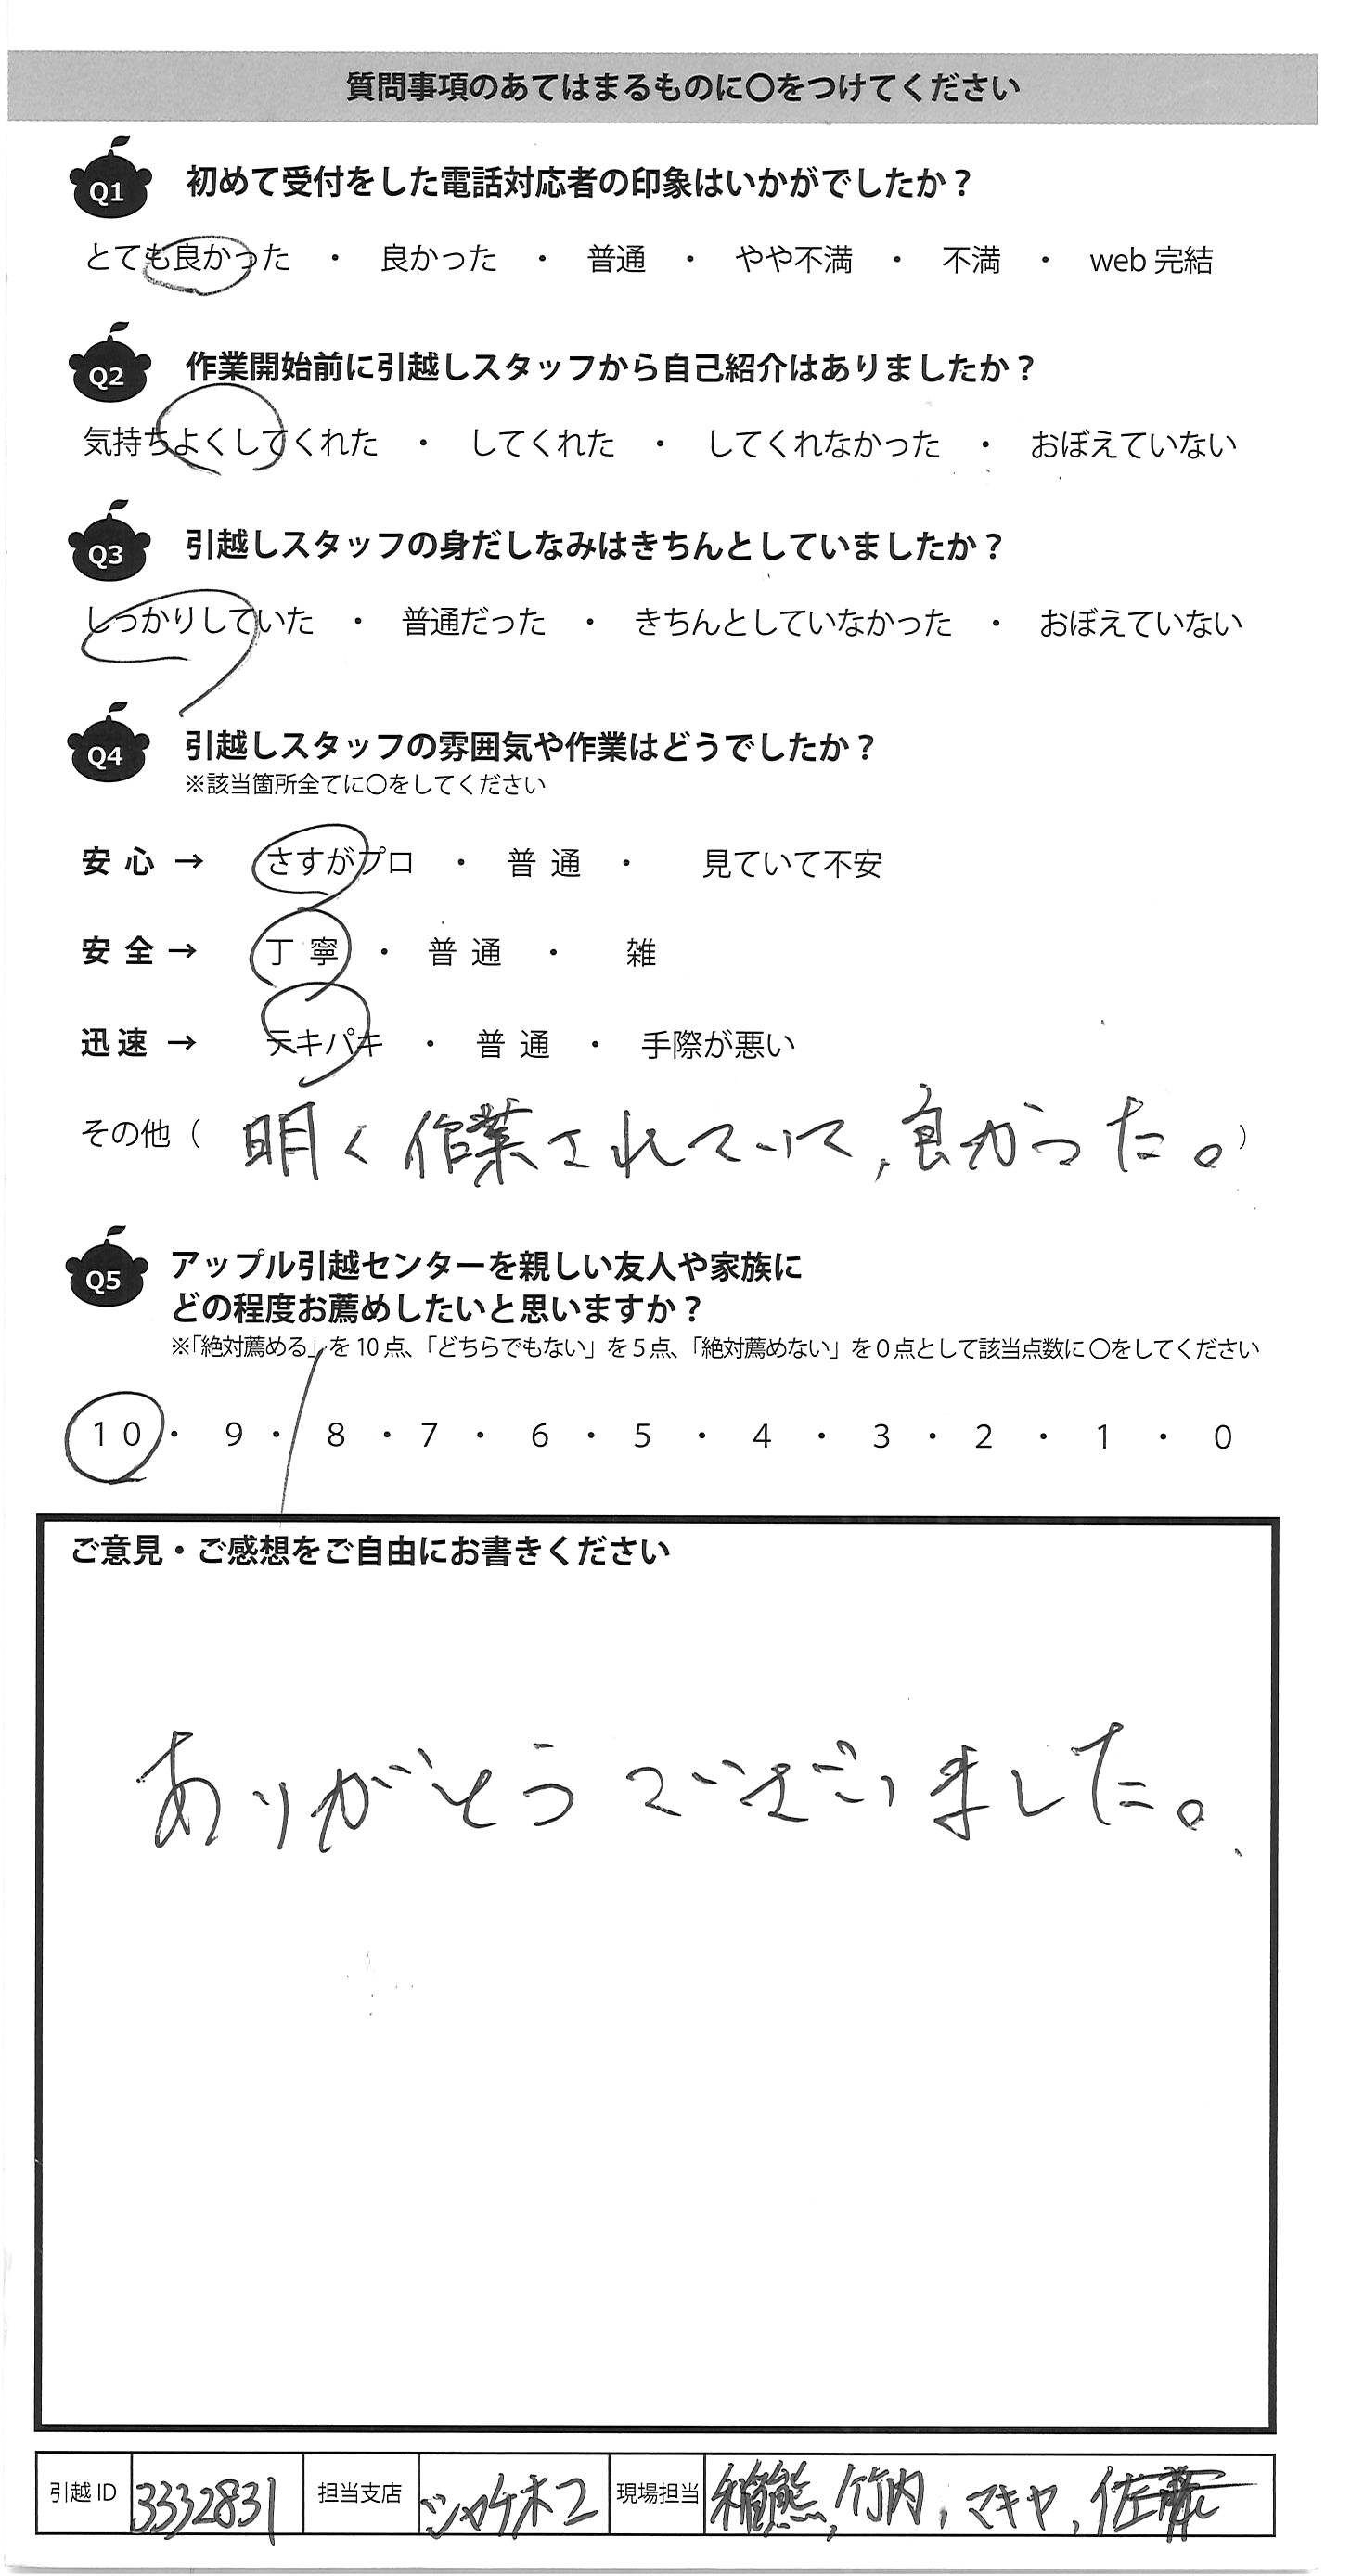 質問事項のあてはまるものに○をつけてください
Q1 初めて受付をした電話対応者の印象はいかがでしたか？
とても良かった ・ 良かった ・ 普通 ・ やや不満 ・ 不満 ・ web 完結
Q2 作業開始前に引越しスタッフから自己紹介はありましたか？
気持ちよくしてくれた ・ してくれた ・ してくれなかった ・ おぼえていない
Q3 引越しスタッフの身だしなみはきちんとしていましたか？
しっかりしていた ・ 普通だった ・ きちんとしていなかった ・ おぼえていない
Q4 引越しスタッフの雰囲気や作業はどうでしたか？
※該当箇所全てに○をしてください
安心 → さすがプロ ・ 普通 ・ 見ていて不安
安全 → 丁寧 ・ 普通 ・ 雑
迅速 → テキパキ ・ 普通 ・ 手際が悪い
その他（ 明く作業されていて, 良かった。）
Q5 アップル引越センターを親しい友人や家族に
どの程度お薦めしたいと思いますか？
※「絶対薦める」を 10 点、「どちらでもない」を 5 点、「絶対薦めない」を 0 点として該当点数に ○をしてください
10 ・ 9 ・ 8 ・ 7 ・ 6 ・ 5 ・ 4 ・ 3 ・ 2 ・ 1 ・ 0
ご意見・ご感想をご自由にお書きください
ありがとうございました。
引越 ID 3332831 担当支店 現場担当 稲熊, 竹内, マキヤ, 佐藤